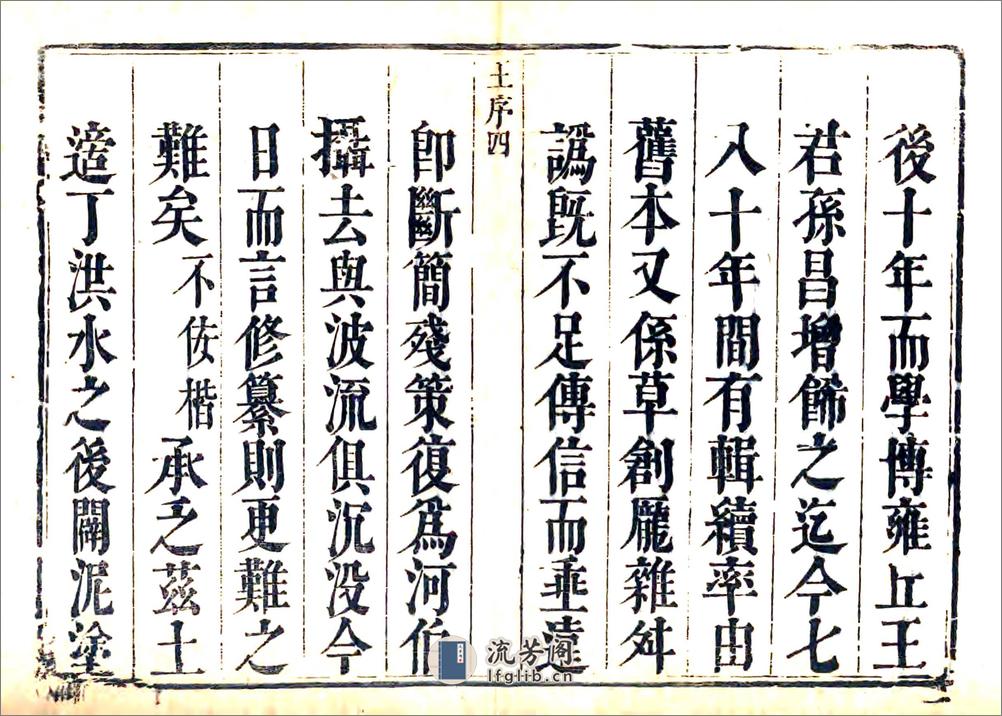 後十年而學博雍丘王
君孫昌增餙之迄今七
八十年間有輯續率由
舊本又係草創龎雜舛
譌既不足傳信而垂遠
王序四
卽斷簡殘策復爲河伯
攝去與波流俱沉没今
日而言修纂則更難之
難矣不佞楷承乏茲土
適丁洪水之後闢泥塗
流芳阁
lfglib.cn